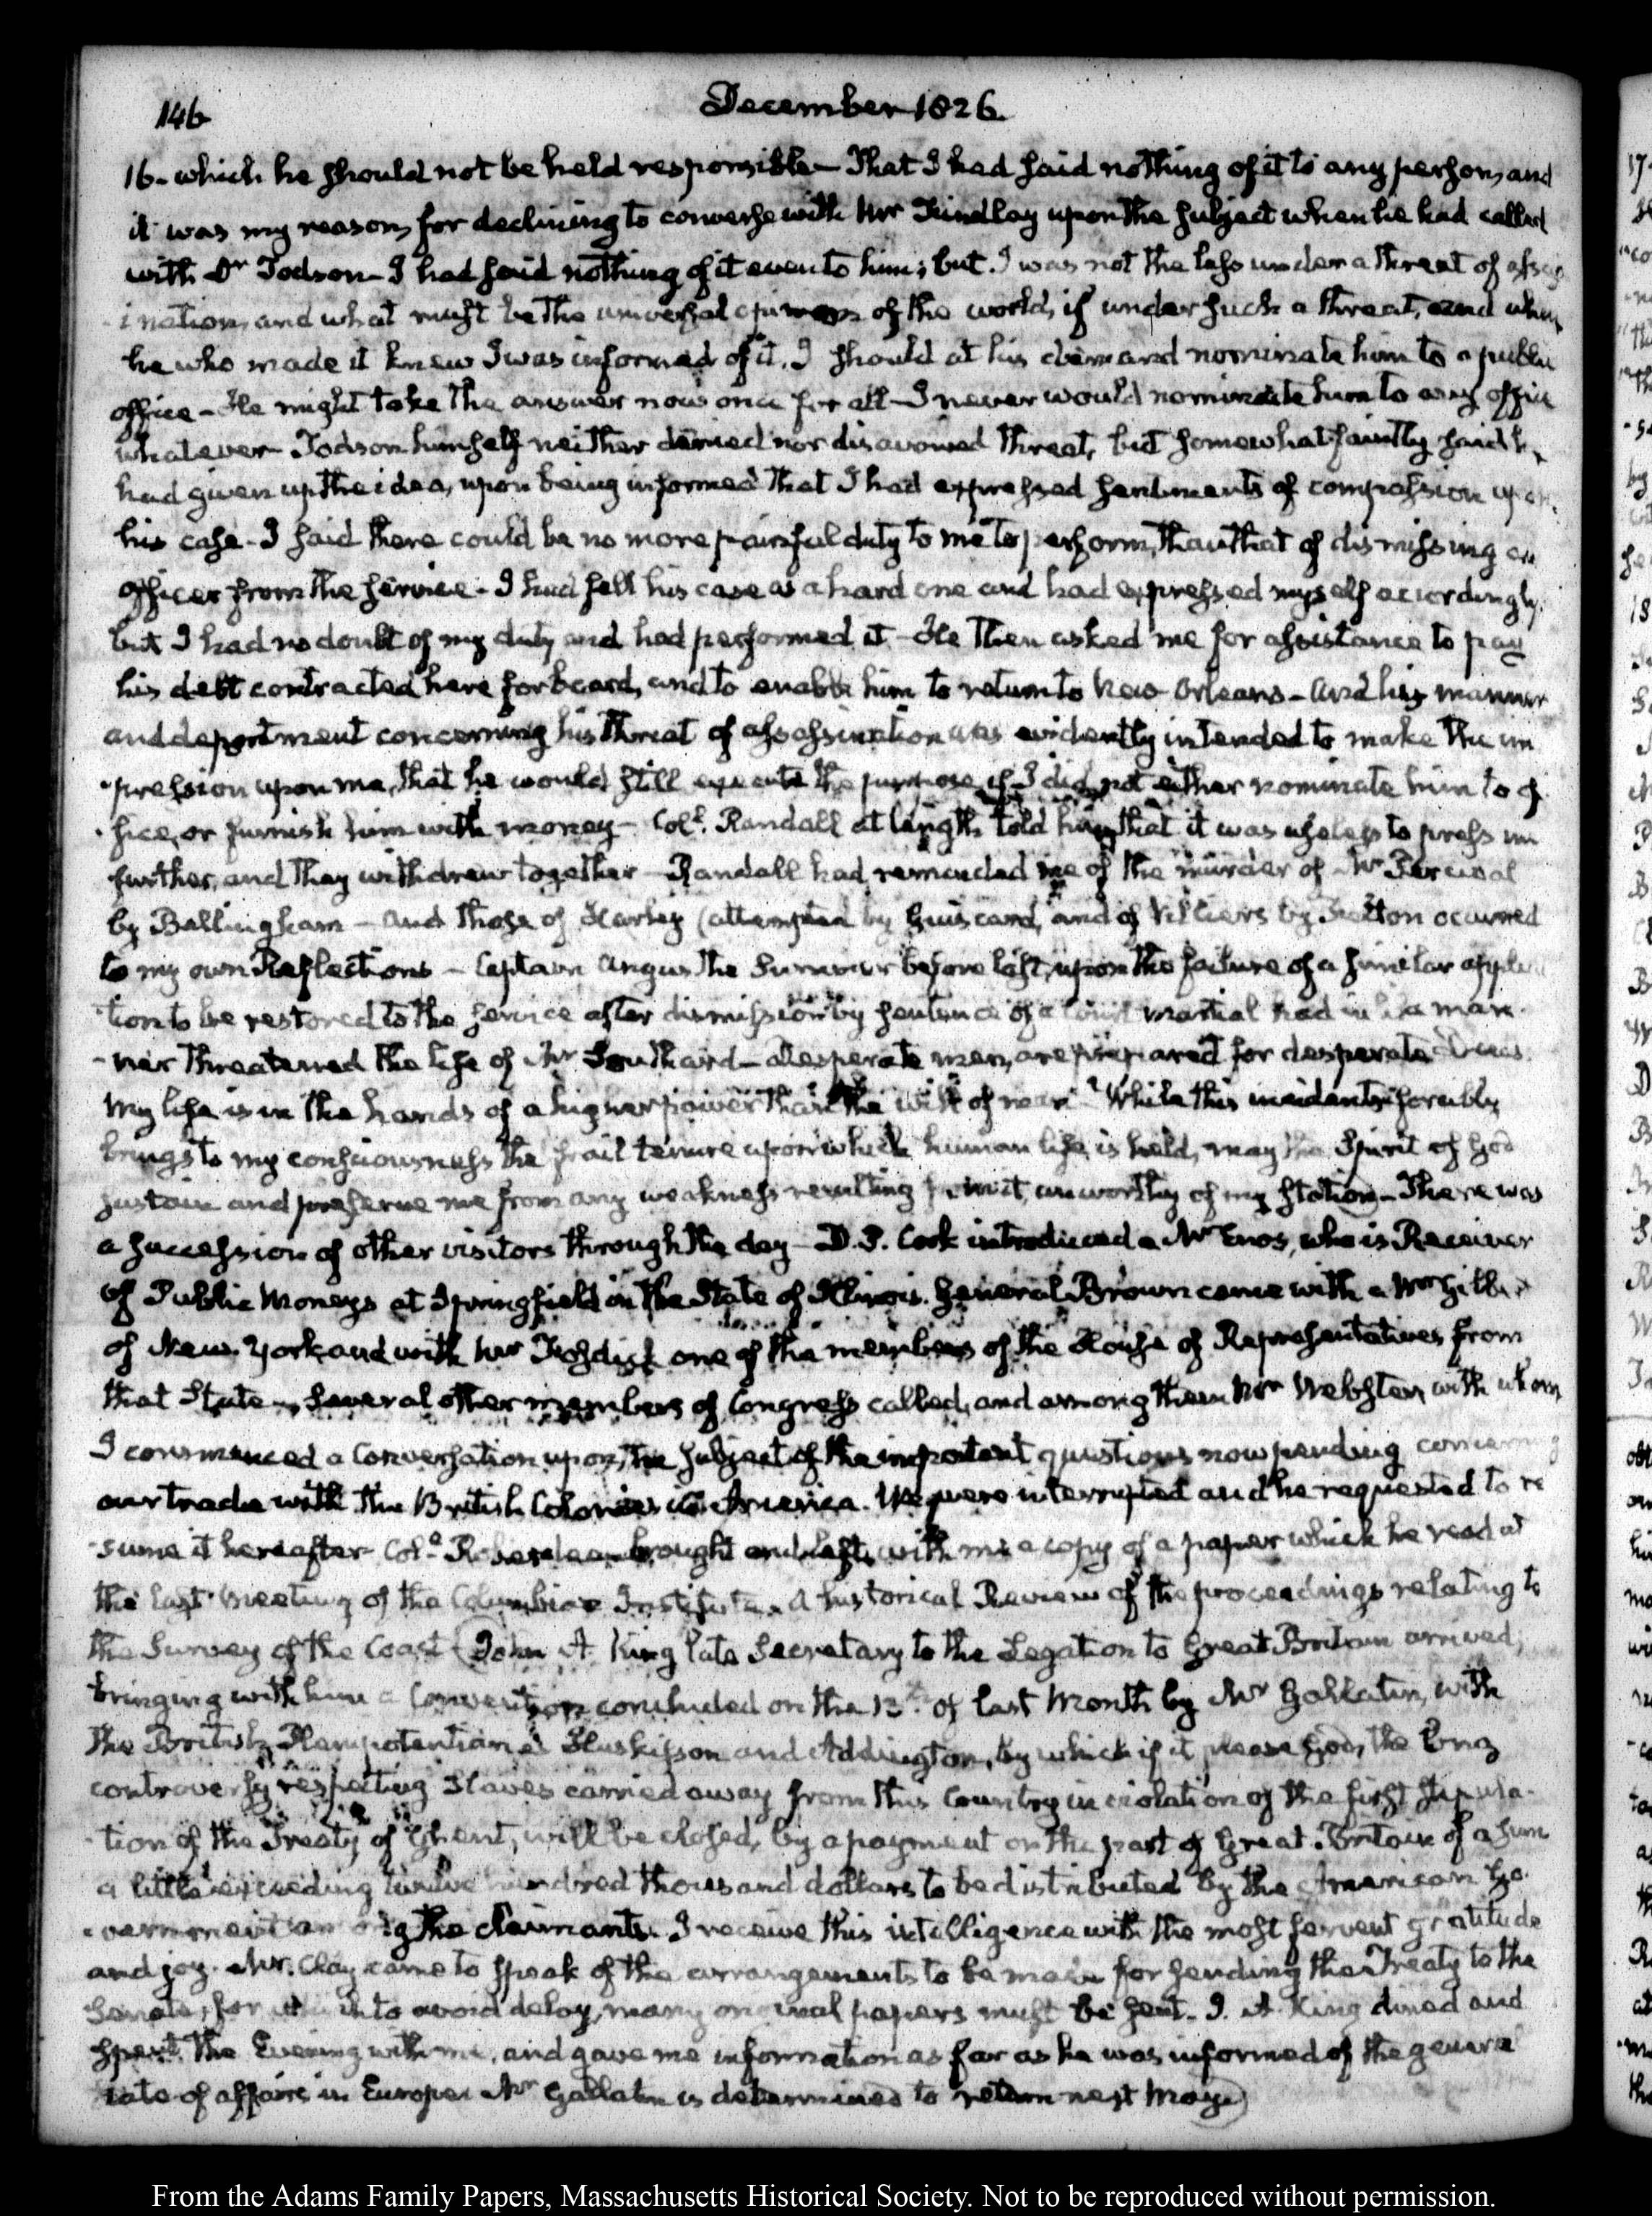 146
December 1826.
16. which he should not be held responsible — That I had said nothing of it to any person, and
it was my reason, for declining to converse with Mr Findlay upon the subject when he had called
with Dr Todson — I had said nothing of it even to him; but I was not the less under a threat of assas
ination, and what must be the universal opinion of the world, if under such a threat, and when
he who made it knew I was informed of it, I should at his demand nominate him to a public
office — He might take the answer now once for all — I never would nominate him to any office
whatever — Todson himself neither denied nor disavowed threat, but somewhat faintly said he
had given up the idea, upon being informed that I had expressed sentiments of compassion upon
his case — I said there could be no more painful duty to me to perform, than that of dismissing an
officer from the service — I had felt his case as a hard one and had expressed myself accordingly;
but I had no doubt of my duty and had performed it — He then asked me for assistance to pay
his debt contracted here for board, and to enable him to return to New Orleans — and his manner
and deportment concerning his threat of assassination was evidently intended to make the im
-pression upon me, that he would still execute the purpose, if I did not either nominate him to of
-fice, or furnish him with money — Coll. Randall at length told him that it was useless to press me
further, and they withdrew together — Randall had reminded me of the murder of Mr Perceval
by Bellingham — and those of Harley (attempted by Guiscard, and of Villiers by Felton occurred
to my own Reflections — Captain Angus the Summer before last, upon the failure of a similar applica
-tion to be restored to the service after dismission by sentence of a Court martial had in like man-
-ner threatened the life of Mr Southard — desperate men, are prepared for desperate deeds.
My life is in the hands of a higher power than the will of man — While this incident forcibly
brings to my consciousness the frail tenure upon which human life is held, may the Spirit of God
sustain and preserve me from any weakness resulting from it, unworthy of my station — There was
a succession of other visitors through the day — D. P. Cook introduced a Mr Enos, who is Receiver
of Public Moneys at Springfield in the State of Illinois. General Brown came with a Mr
of New-York and with Mr Fosdick one of the members of the House of Representatives from
that State — Several other members of Congress called, and among them Mr Webster, with whom
I commenced a Conversation upon, the subject of the important questions now pending concerning
our trade with the British Colonies in America. We were interrupted and he requested to re
-sume it hereafter — Coll. Roberdeau brought and left, with me a copy of a paper which he read at
the last meeting of the Columbian Institute. A historical Review of the proceedings relating to
the Survey of the Coast (John A. King late Secretary to the Legation to Great Britain arrived;
bringing with him a Convention concluded on the 13th. of last Month by Mr Gallatin, with
the British Plenipotentiaries Huskisson and Addington, by which if it please God, the long
controversy respecting Slaves carried away from this Country in violation of the first stipula-
-tion of the Treaty of Ghent, will be closed, by a payment on the part of Great-Britain of a sum
a little exceeding twelve hundred thousand dollars to be distributed by the American Go-
-vernment among the claimants. I receive this intelligence with the most fervent gratitude
and joy. Mr. Clay came to speak of the arrangements to be made for sending the Treaty to the
Senate, for which to avoid delay, many original papers must be sent. J. A. King dined and
spent the Evening with me, and gave me information as far as he was informed of the general
state of affairs in Europe. Mr Gallatin is determined to return next May)
From the Adams Family Papers, Massachusetts Historical Society. Not to be reproduced without permission.